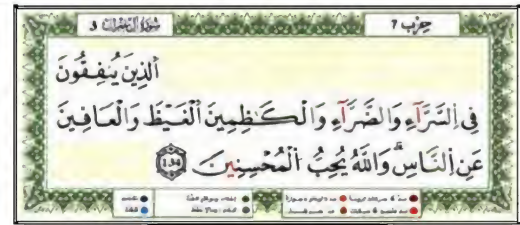 سُورَةُ آلِ عِمْرَانَ 3
حِزْب 7
اَلذِينَ يُنفِقُونَ
فِي اِلسَّرَّآءِ وَالضَّرَّآءِ وَالْكَٰظِمِينَ اَلْغَيْظَ وَالْعَافِينَ
عَنِ اِلنَّاسِۖ وَاللَّهُ يُحِبُّ اُلْمُحْسِنِينَ 134